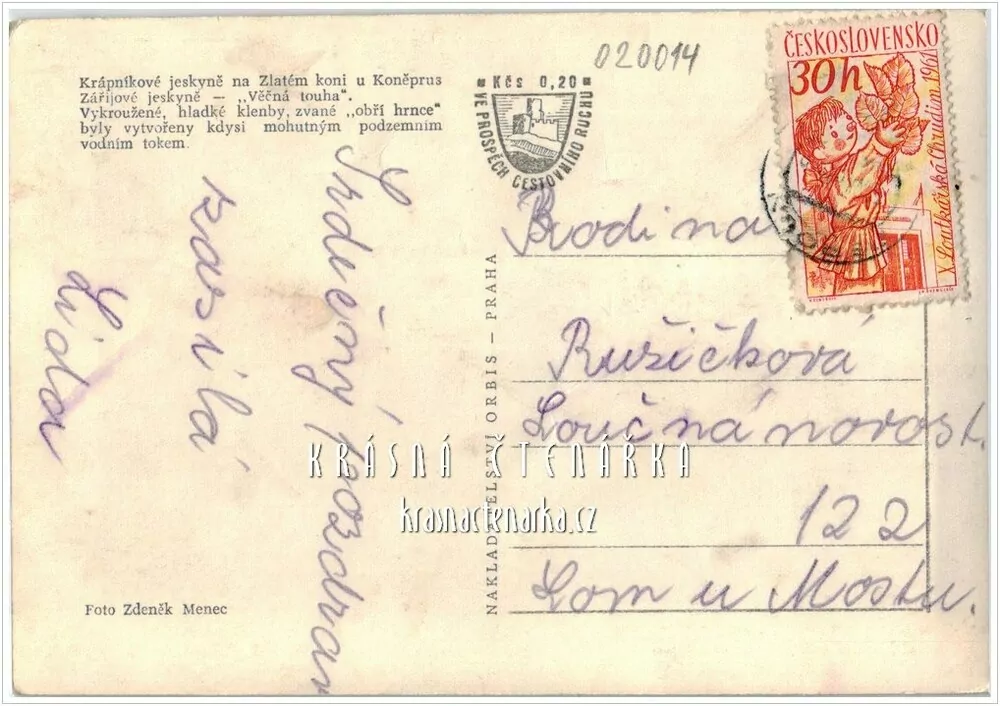 Krápníkové jeskyně na Zlatém koni u Koněprus
Zářijové jeskyně — „Věčná touha".
Vykroužené, hladké klenby, zvané „obří hrnce"
byly vytvořeny kdysi mohutným podzemním
vodním tokem.
Srdečný pozdrav
zasílá
Lida
Foto Zdeněk Menec
NAKLADATELSTVÍ ORBIS – PRAHA
Kčs 0,20
VE PROSPĚCH CESTOVNÍHO RUCHU
020014
ČESKOSLOVENSKO
30h
X. Loutkářská Chrudim 1961
Rodina
Ružičková
Loučná novost.
122
Lom u Mostu.
KRÁSNÁ ČTENÁŘKA
krasnactenarka.cz